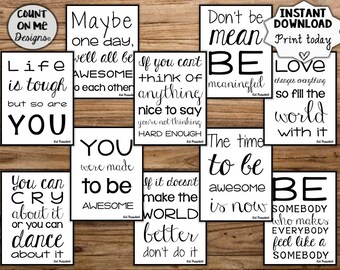 COUNT
ON ME
Designs
INSTANT
DOWNLOAD
Print today
Maybe
one day,
we'll all be
AWESOME
to each other
Don't be
mean
BE
meaningful
Life
is tough
but so are
YOU
If you can't
think of
anything
nice to say
you're not thinking
HARD ENOUGH
LOVE
changes everything
so fill the
world
with it
YOU
were made
to be
AWESOME
The time
to be
awesome
is now
You can
CRY
about it
or you can
dance
about it
If it doesn't
make the
WORLD
better
don't do it
BE
SOMEBODY
who makes
EVERYBODY
feel like a
SOMEBODY